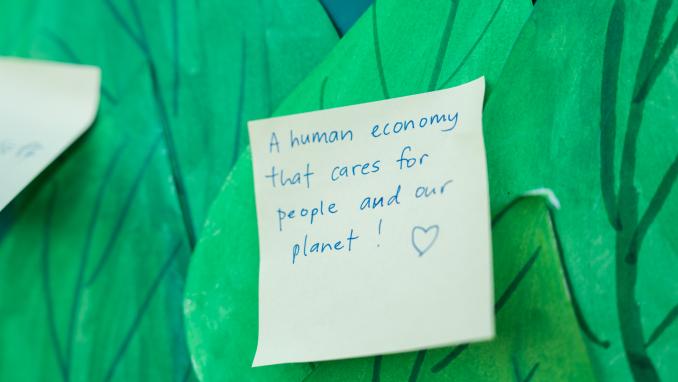 A human economy
that cares for
people and our
planet! ♡